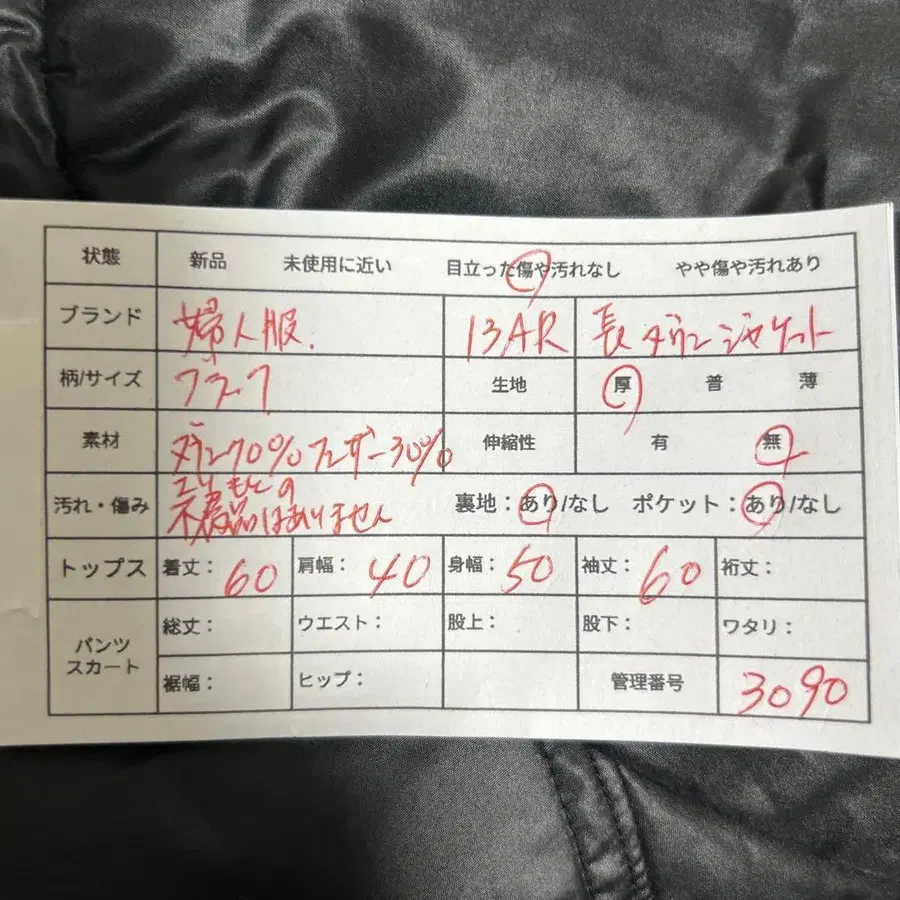 状態 新品 未使用に近い 目立った傷や汚れなし やや傷や汚れあり
ブランド 婦人服. 13AR 長ダウンジャケット
柄/サイズ ブラック 生地 厚 普 薄
素材 ダウン70%フェザー30% 伸縮性 有 無
汚れ・傷み えりもとの 裏地:あり/なし ポケット:あり/なし
はありません
トップス 着丈:60 肩幅:40 身幅:50 袖丈:60 裄丈:
パンツ スカート 総丈: ウエスト: 股上: 股下: ワタリ:
裾幅: ヒップ: 管理番号 3090